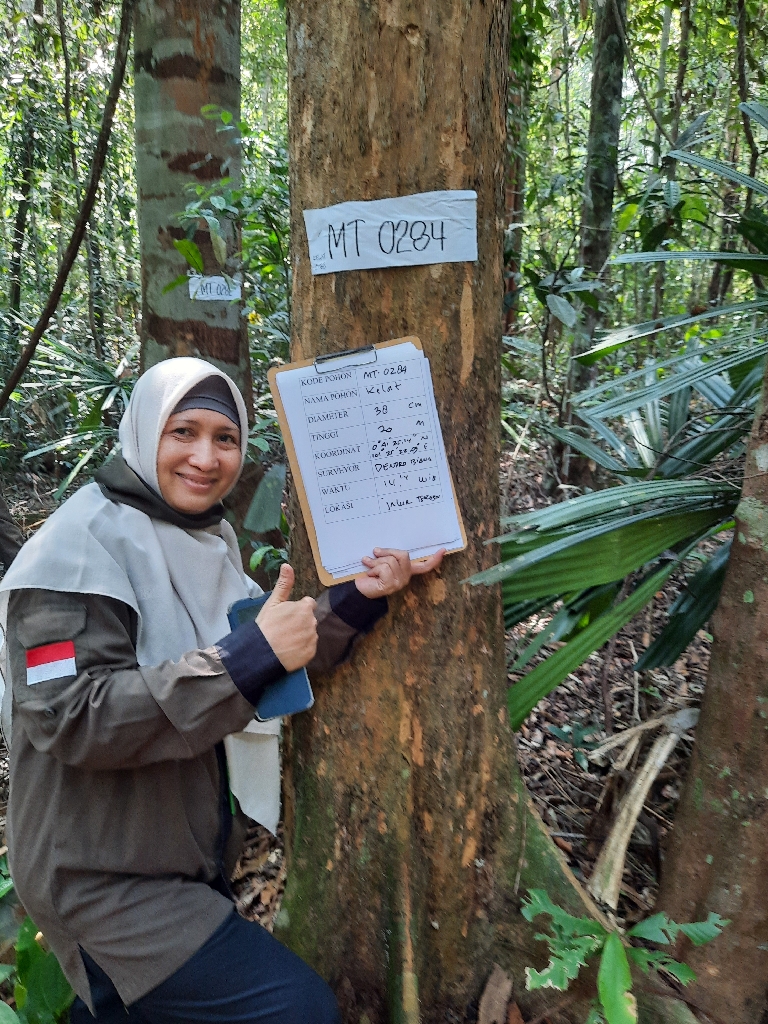 MT 0284
KODE POHON MT. 0284
NAMA POHON Kelat
DIAMETER 38 cm
TINGGI 20 M
KOORDINAT
SURVEYOR DENDRO
WAKTU WIB
LOKASI JALUR